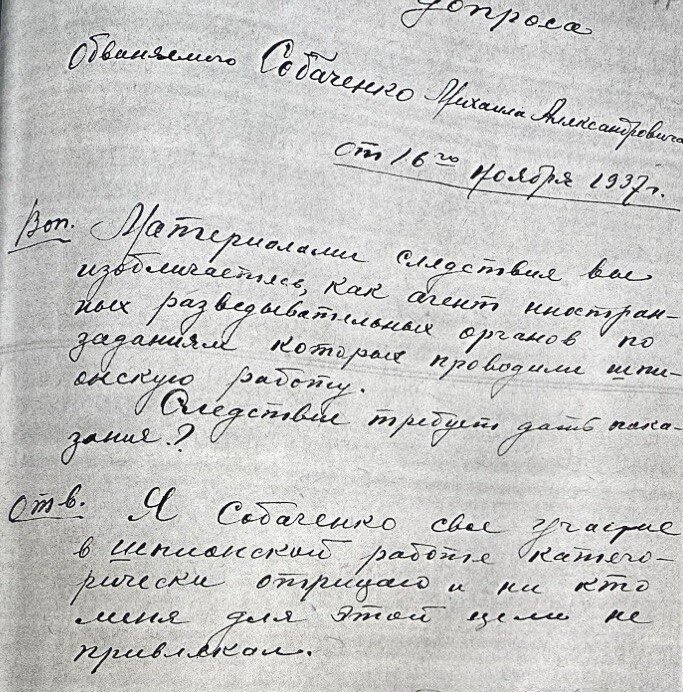 допроса
Обвиняемого Собаченко Михаила Александровича
от 16го ноября 1937 г.
Воп. Материалами следствия вы
изобличаетесь, как агент иностран-
ных разведывательных органов по
заданиям которых проводили шпи-
онскую работу.
Следствие требует дать пока-
зания?
Отв. Я Собаченко свое участие
в шпионской работе катего-
рически отрицаю и ни кто
меня для этой цели не
привлекал.